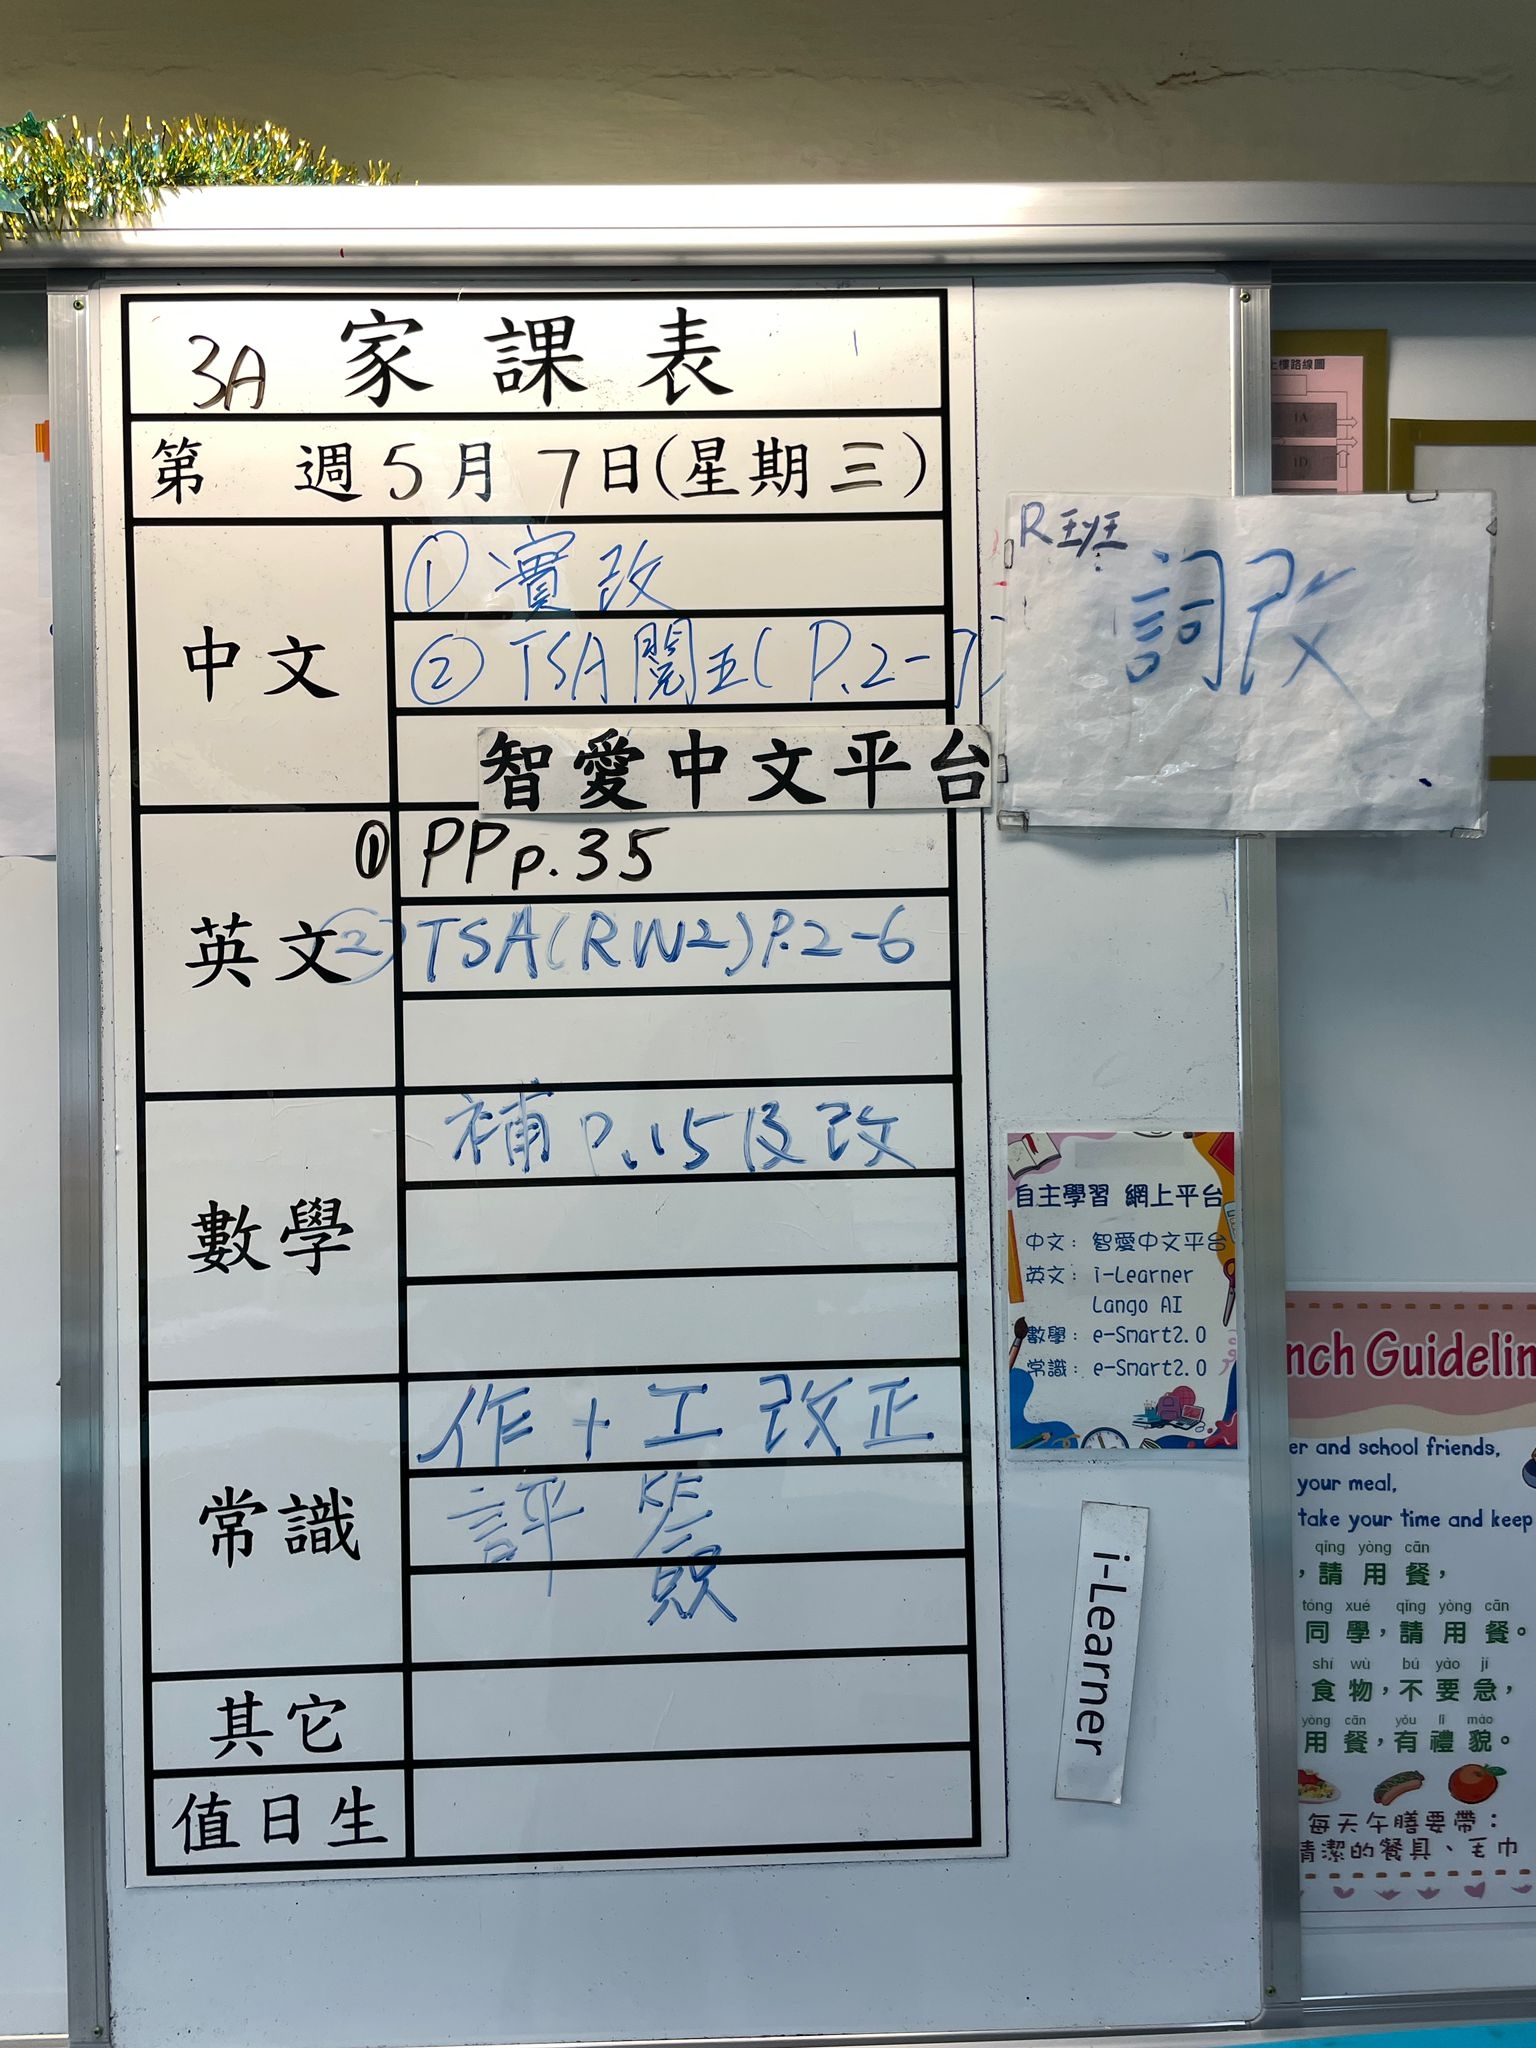 3A 家課表
第 週 5月 7日(星期三)
中文
① 實改
② TSA 閱五( P.2-7)
智愛中文平台
英文
① PP p.35
② TSA(RW2) P.2-6
數學
補 P.15及改
常識
作+工 改正
評 簽
其它
值日生
R班:
詞改
自主學習 網上平台
中文: 智愛中文平台
英文: i-Learner
Lango AI
數學: e-Smart2.0
常識: e-Smart2.0
i-Learner
上樓路線圖
1A
1D
nch Guidelin
er and school friends,
your meal,
take your time and keep
qǐng yòng cān
,請用餐,
tóng xué qǐng yòng cān
同學,請用餐。
shí wù bú yào jí
食物,不要急,
yòng cān yǒu lǐ mào
用餐,有禮貌。
每天午膳要帶:
清潔的餐具、毛巾